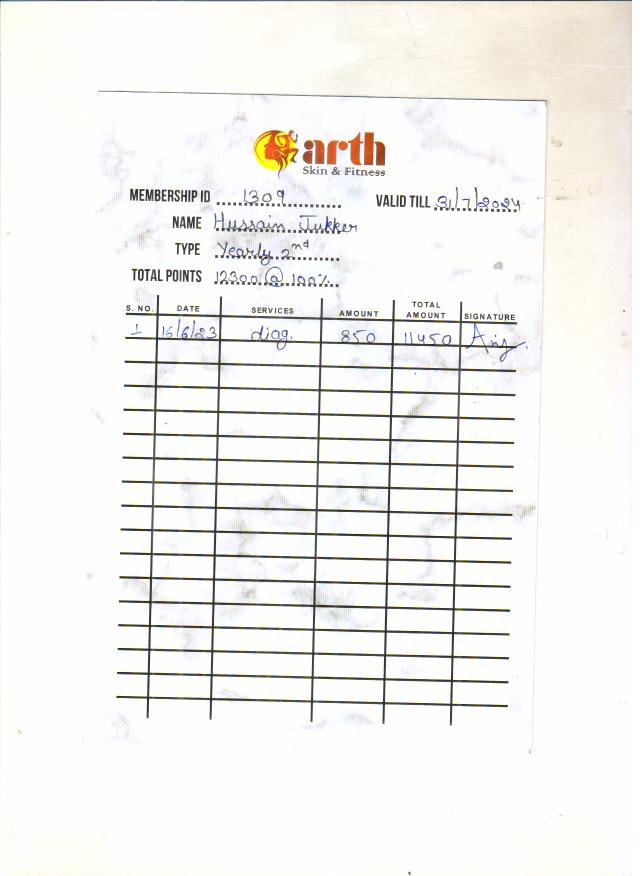 arth
Skin & Fitness
MEMBERSHIP ID 1309 VALID TILL 31/7/2024
NAME Hussain Tukker
TYPE Yearly 2nd
TOTAL POINTS 12300 @ 100%
S. NO. DATE SERVICES AMOUNT TOTAL AMOUNT SIGNATURE
1 16/6/23 diag. 850 11450